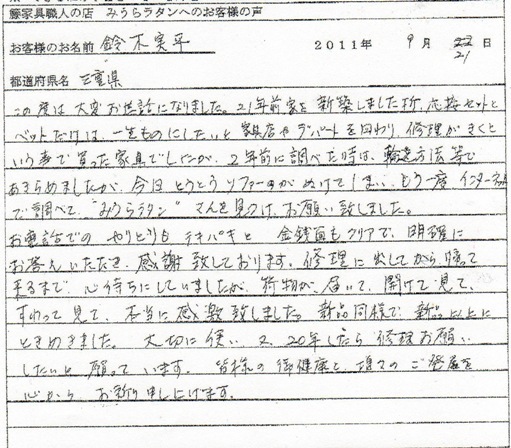 籐家具職人の店 みうらラタンへのお客様の声
お客様のお名前 鈴木実平 2011年 9月 21日
都道府県名 三重県
この度は大変お世話になりました。21年前家を新築しました折、応接セットと
ベットだけは、一生ものにしたいと家具店やデパートを回わり、修理がきくと
いう事で買った家具でしたが、2年前に調べた時は、輸送方法等で
あきらめましたが、今回とうとうソファーがぬけてしまい、もう一度インターネット
で調べて、"みうらラタン"さんを見つけ、お願い致しました。
お電話でのやりとりもテキパキと 金銭面もクリアで、明確に
お答えいただき、感謝致しております。修理に出してから帰って
来るまで、心待ちにしていましたが、荷物が届いて、開けて見て、
すわって見て、本当に感激致しました。新品同様で、新品以上に
ときめきました。大切に使い 又、20年したら修理お願い
したいと願っています。皆様の御健康と、増々のご発展を
心から お祈り申し上げます。